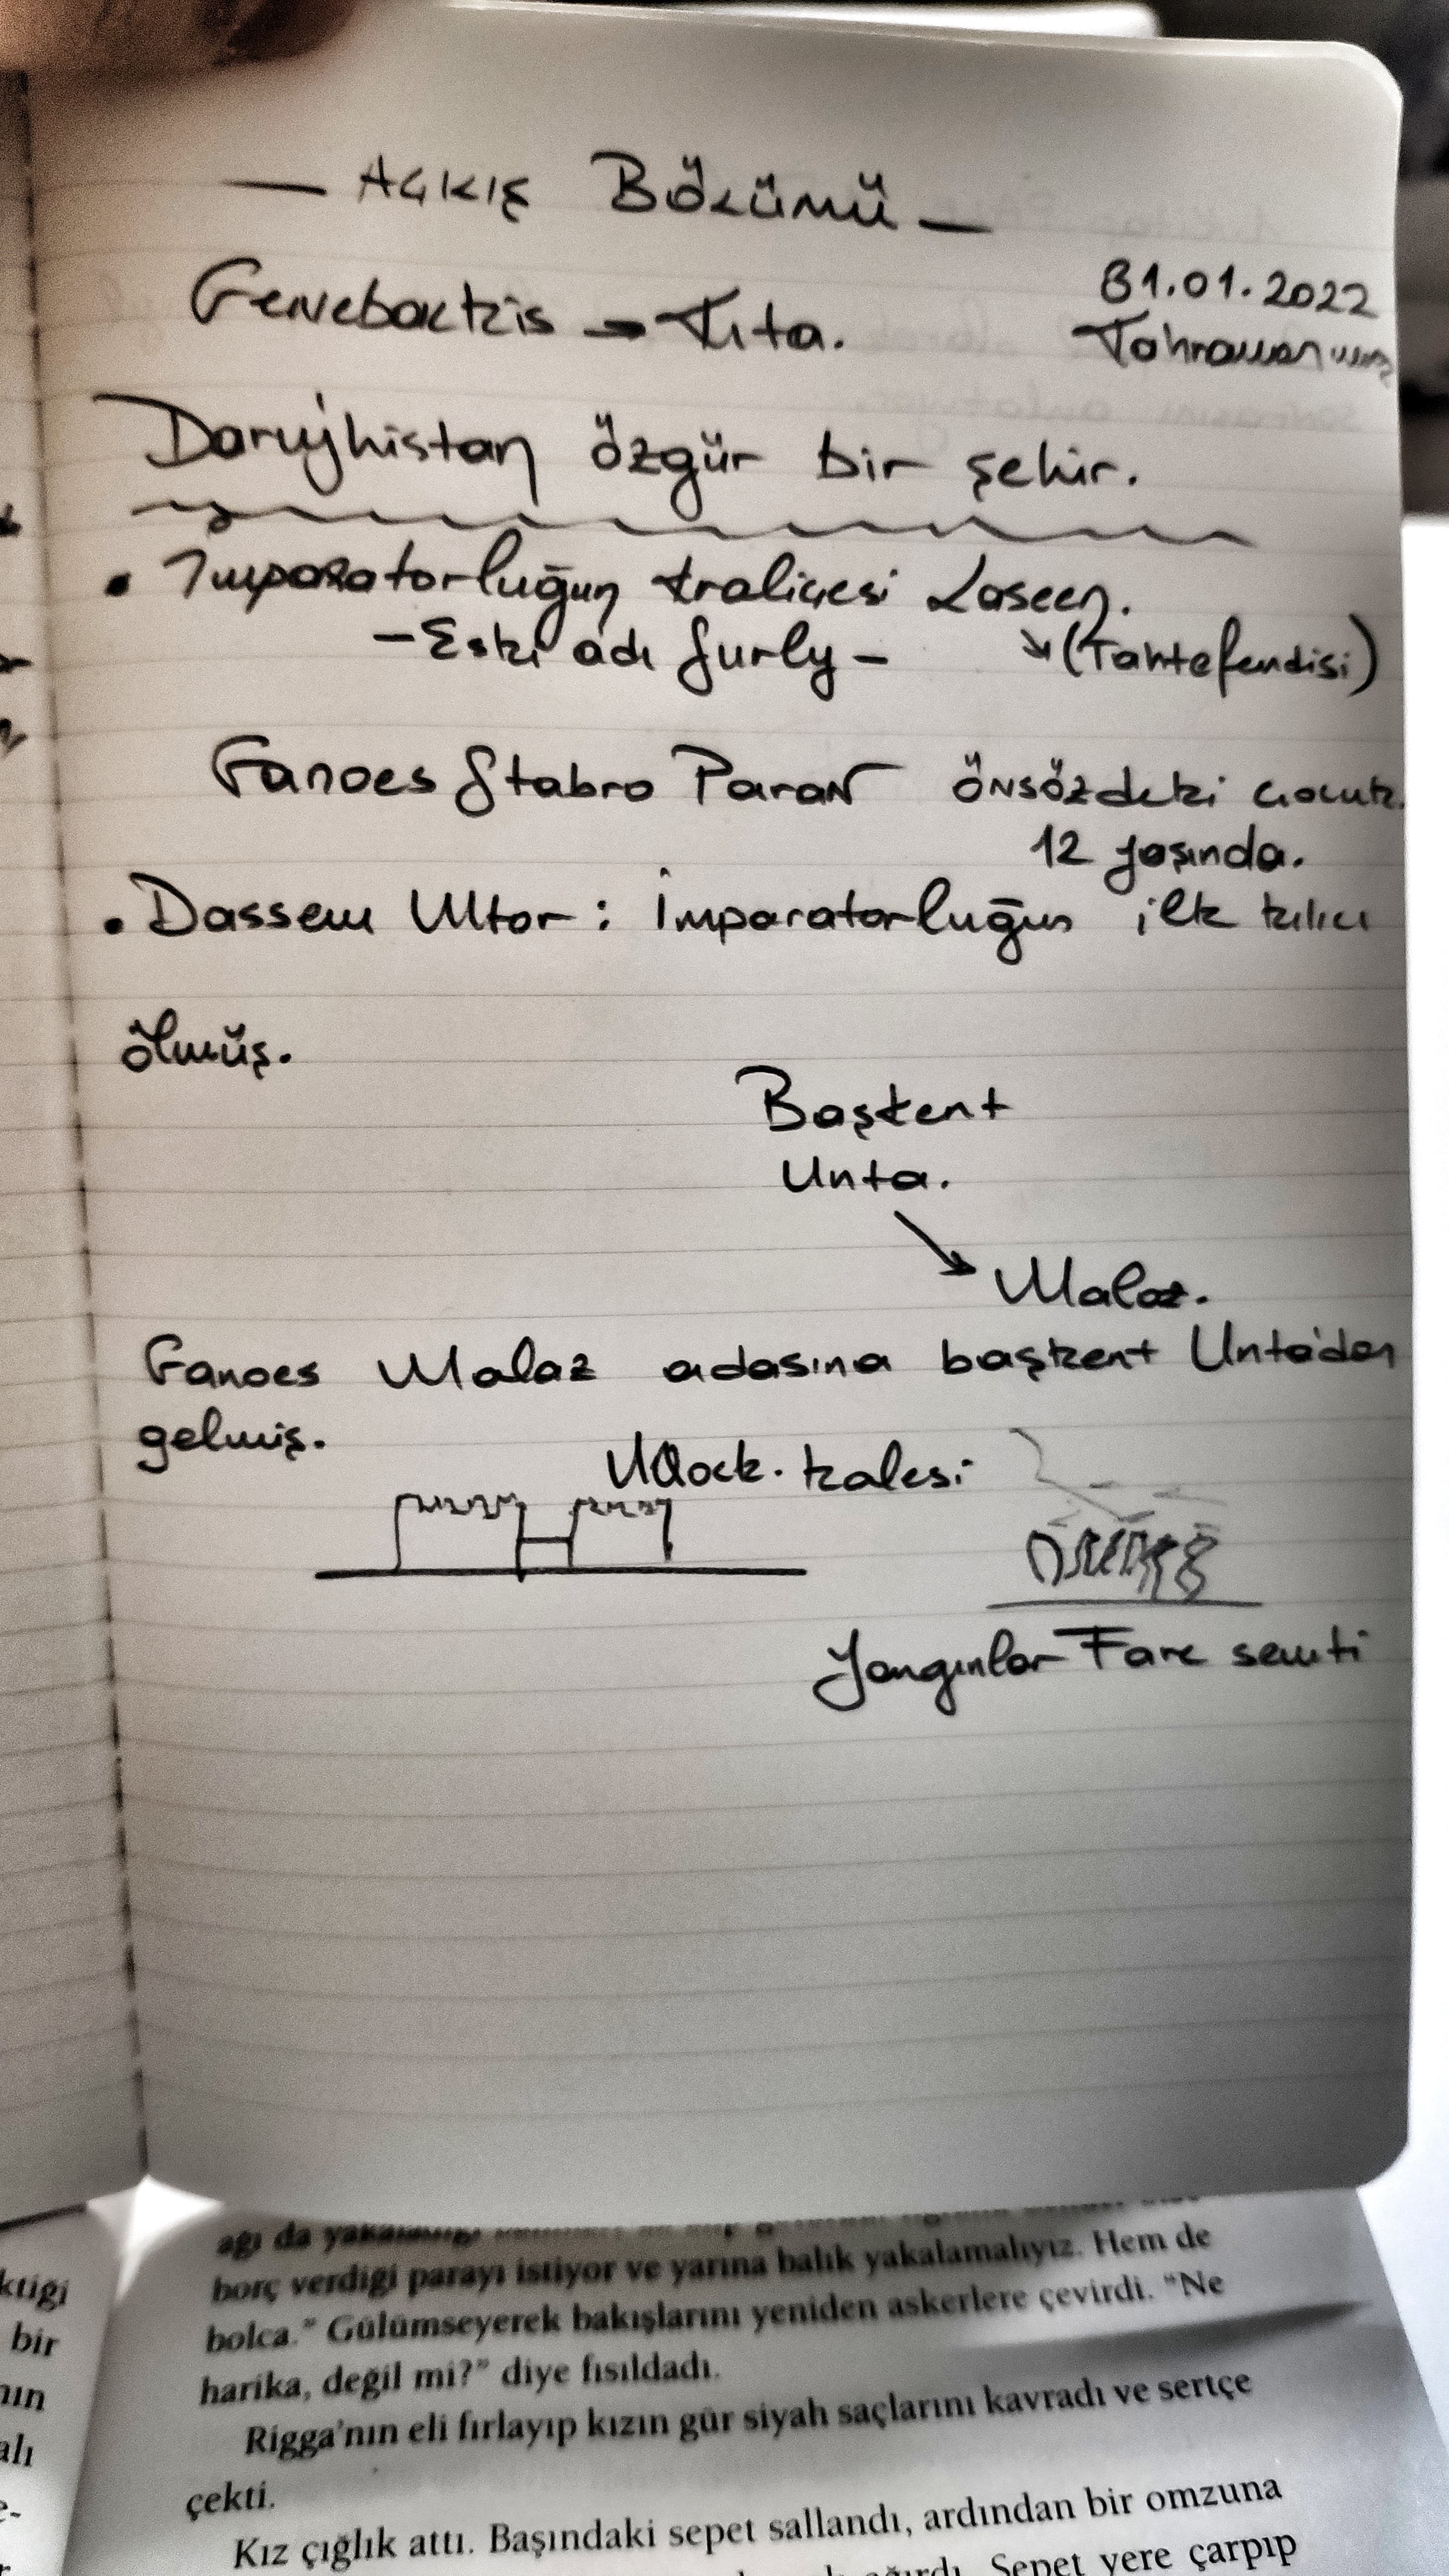 — AÇKIŞ BÖLÜMÜ —
Genebackis → Kıta.
31.01.2022
Kahramanmaraş
Darujhistan özgür bir şehir.
• İmparatorluğun kraliçesi Laseen.
- Eski adı Surly -
↘ (Tahtefendisi)
Ganoes Stabro Paran önsözdeki çocuk.
12 yaşında.
• Dassem Ultor: İmparatorluğun ilk kılıcı
ölmüş.
Başkent
Unta.
↘ Malaz.
Ganoes Malaz adasına başkent Unta'dan
gelmiş.
Mock. kalesi
Yangınlar Fare semti
ağı da
borç verdiği parayı istiyor ve yarına balık yakalamalıyız. Hem de
bolca." Gülümseyerek bakışlarını yeniden askerlere çevirdi. "Ne
harika, değil mi?" diye fısıldadı.
Rigga'nın eli fırlayıp kızın gür siyah saçlarını kavradı ve sertçe
çekti.
Kız çığlık attı. Başındaki sepet sallandı, ardından bir omzuna
Sepet yere çarpıp
ktiği
bir
nın
alı